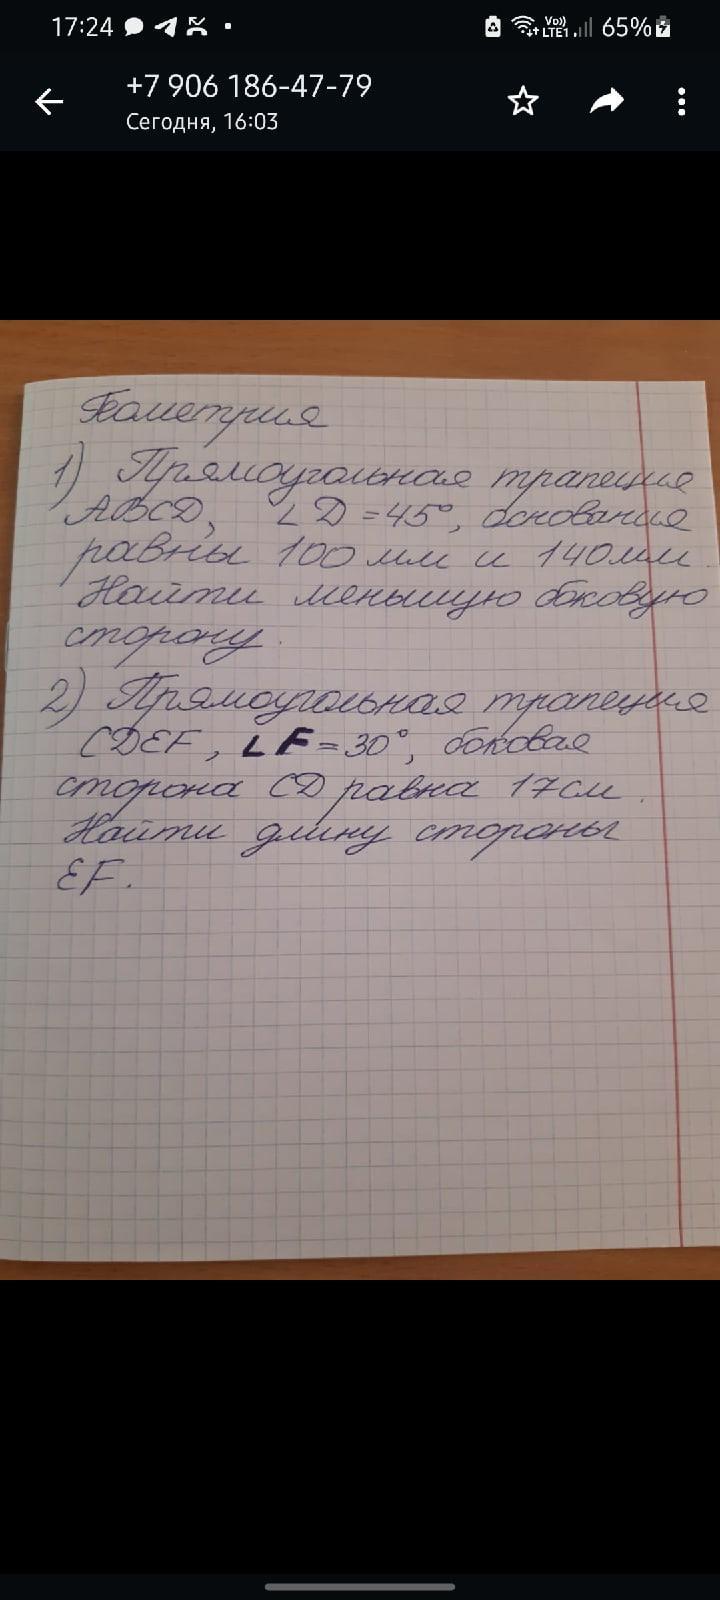 17:24
Vo)) LTE1
65%
+7 906 186-47-79
Сегодня, 16:03
Геометрия
1) Прямоугольная трапеция
ABCD, ∠D=45°, основания
равны 100 мм и 140 мм.
Найти меньшую боковую
сторону.
2) Прямоугольная трапеция
CDEF, ∠F=30°, боковая
сторона CD равна 17 см.
Найти длину стороны
EF.